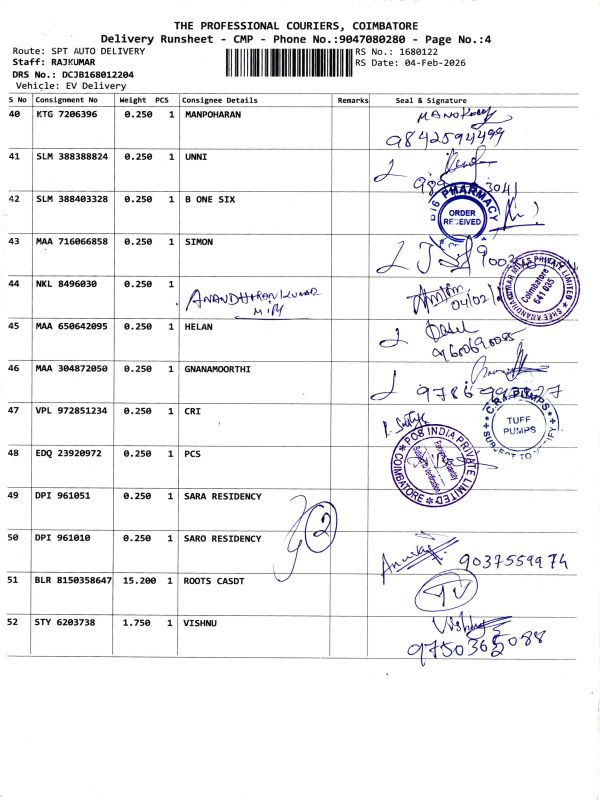 THE PROFESSIONAL COURIERS, COIMBATORE
Delivery Runsheet - CMP - Phone No.:9047080280 - Page No.:4
Route: SPT AUTO DELIVERY RS No.: 1680122
Staff: RAJKUMAR RS Date: 04-Feb-2026
DRS No.: DCJB168012204
Vehicle: EV Delivery
S No Consignment No Weight PCS Consignee Details Remarks Seal & Signature
40 KTG 7206396 0.250 1 MANPOHARAN
9842594499
41 SLM 388388824 0.250 1 UNNI
3041
42 SLM 388403328 0.250 1 B ONE SIX
PHARMACY
ORDER
RECEIVED
43 MAA 716066858 0.250 1 SIMON
44 NKL 8496030 0.250 1
04/02/
Coimbatore
641 035
45 MAA 650642095 0.250 1 HELAN
9600690085
46 MAA 304872050 0.250 1 GNANAMOORTHI
47 VPL 972851234 0.250 1 CRI
C.R.I. PUMPS
TUFF
PUMPS
SUBJECT TO VERIFY
48 EDQ 23920972 0.250 1 PCS
PCS INDIA PRIVATE LIMITED
COIMBATORE
49 DPI 961051 0.250 1 SARA RESIDENCY
2
50 DPI 961010 0.250 1 SARO RESIDENCY
9037559974
51 BLR 8150358647 15.200 1 ROOTS CASDT
52 STY 6203738 1.750 1 VISHNU